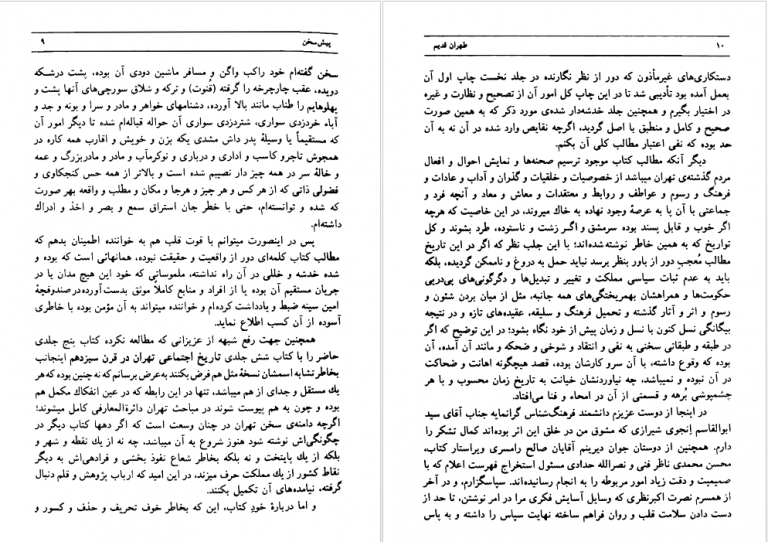 پیش سخن ۹
سخن گفته‌ام خود راکب واگن و مسافر ماشین دودی آن بوده، پشت درشکه
دویده، عقب چارچرخه را گرفته (قُنوت) و ترکه و شلاق سورچی‌های آنها پشت و
پهلوهایم را طناب مانند بالا آورده، دشنامهای خواهر و مادر و سرا و بونه و جد و
آباء خردزدی سواری، شتردزدی سواری آن حواله قباله‌ام شده تا دیگر امور آن
که مستقیماً یا وسیلۀ پدر داش مشدی یکه بزن و خویش و اقارب همه کاره در
همجوش تاجر و کاسب و اداری و درباری و نوکرمآب و مادر و مادربزرگ و عمه
و خالۀ سر در همه چیز دار نصیبم شده است و بالاتر از همه حس کنجکاوی و
فضولی ذاتی که از هر کس و هر چیز و هرجا و مکان و مطلب و واقعه بهر صورت
که شده و توانسته‌ام، حتی با خطر جان استراق سمع و بصر و اخذ و ادراك
داشته‌ام.
پس در اینصورت میتوانم با قوت قلب هم به خواننده اطمینان بدهم که
مطالب کتاب کلمه‌ای دور از واقعیت و حقیقت نبوده، همانهائی است که بوده و
شده خدشه و خللی در آن راه نداشته، ملموساتی که خود این هیچ مدان یا در
جریان مستقیم آن بوده یا از افراد و منابع کاملاً موثق بدست آورده در صندوقچۀ
امین سینه ضبط و یادداشت کرده‌ام و خواننده میتواند به آن مؤمن بوده با خاطری
آسوده از آن کسب اطلاع نماید.
همچنین جهت رفع شبهه از عزیزانی که مطالعه نکرده کتاب پنج جلدی
حاضر را با کتاب شش جلدی تاریخ اجتماعی تهران در قرن سیزدهم اینجانب
بخاطر تشابه اسمشان نسخۀ مثل هم فرض بکنند به عرض برسانم که نه چنین بوده که هر
یك مستقل و جدای از هم میباشد، تنها در این رابطه که در عین انفکاك مکمل هم
بوده و چون به هم پیوست شوند در مباحث تهران دائرةالمعارفی کامل میشوند؛
اگرچه دامنه‌ی سخن تهران در چنان وسعت است که اگر دهها کتاب دیگر در
چگونگی‌اش نوشته شود هنوز شروع به آن میباشد، چه نه از یك نقطه و شهر و
بلکه از یك پایتخت و نه بلکه بخاطر شعاع نفوذ بخشی و فرادهی‌اش به دیگر
نقاط کشور از یك مملکت حرف میزند، در این امید که ارباب پژوهش و قلم دنبال
گرفته، نیامده‌های آن تکمیل بکنند.
و اما دربارۀ خود کتاب، این که بخاطر خوف تحریف و حذف و کسور و
۱۰ طهران قدیم
دستکاری‌های غیرمأذون که دور از نظر نگارنده در جلد نخست چاپ اول آن
بعمل آمده بود تأدیبی شد تا در این چاپ کل امور آن از تصحیح و نظارت و غیره
در اختیار بگیرم و همچنین جلد خدشه‌دار شده‌ی مورد ذکر که به همین صورت
صحیح و کامل و منطبق با اصل گردید، اگرچه نقایص وارد شده در آن نه به آن
حد بوده که نفی اعتبار مطالب کلی آن بکنم.
دیگر آنکه مطالب کتاب موجود ترسیم صحنه‌ها و نمایش احوال و افعال
مردم گذشته‌ی تهران میباشد از خصوصیات و خلقیات و گذران و آداب و عادات و
فرهنگ و رسوم و عواطف و روابط و معتقدات و معاش و معاد و آنچه فرد و
جماعتی با آن پا به عرصۀ وجود نهاده به خاك میروند، در این خاصیت که هرچه
اگر خوب و قابل پسند بوده سرمشق و اگر زشت و ناستوده، طرد بشوند و کل
تواریخ که به همین خاطر نوشته شده‌اند؛ با این جلب نظر که اگر در این تاریخ
مطالب مُعجبِ دور از باور بنظر برسد نباید حمل به دروغ و ناممکن گردیده، بلکه
باید به عدم ثبات سیاسی مملکت و تغییر و تبدیل‌ها و دگرگونی‌های پی‌درپی
حکومت‌ها و همراهشان بهمریختگی‌های همه جانبه، مثل از میان بردن شئون و
رسوم و اثر و آثار گذشته و تحمیل فرهنگ و سلیقه، عقیده‌های تازه و در نتیجه
بیگانگی نسل کنون با نسل و زمان پیش از خود نگاه بشود؛ در این توضیح که اگر
در طبقه و طبقاتی سخنی به نفی و انتقاد و شوخی و ضحکه و مانند آن آمده، آن
بوده که وقوع داشته، با آن سرو کارشان بوده، قصد هیچگونه اهانت و ضحاکت
در آن نبوده و نمیباشد، چه نیاوردنشان خیانت به تاریخ زمان محسوب و با هر
چشمپوشی بُرهه و قسمتی از آن در امحاء و فنا می‌افتاد.
در اینجا از دوست عزیزم دانشمند فرهنگ‌شناس گرانمایه جناب آقای سید
ابوالقاسم اِنجوی شیرازی که مشوق من در خلق این اثر بوده‌اند کمال تشکر را
دارم. همچنین از دوستان جوان دیرینم آقایان صالح رامسری ویراستار کتاب،
محسن محمدی ناظر فنی و نصرالله حدادی مسئول استخراج فهرست اعلام که با
صمیمیت و دقت زیاد امور مربوطه را به انجام رسانیده‌اند. سپاسگزارم، و در آخر
از همسرم نصرت اکبرنظری که وسایل آسایش فکری مرا در امر نوشتن، تا حد از
دست دادن سلامت قلب و روان فراهم ساخته نهایت سپاس را داشته و به پاس